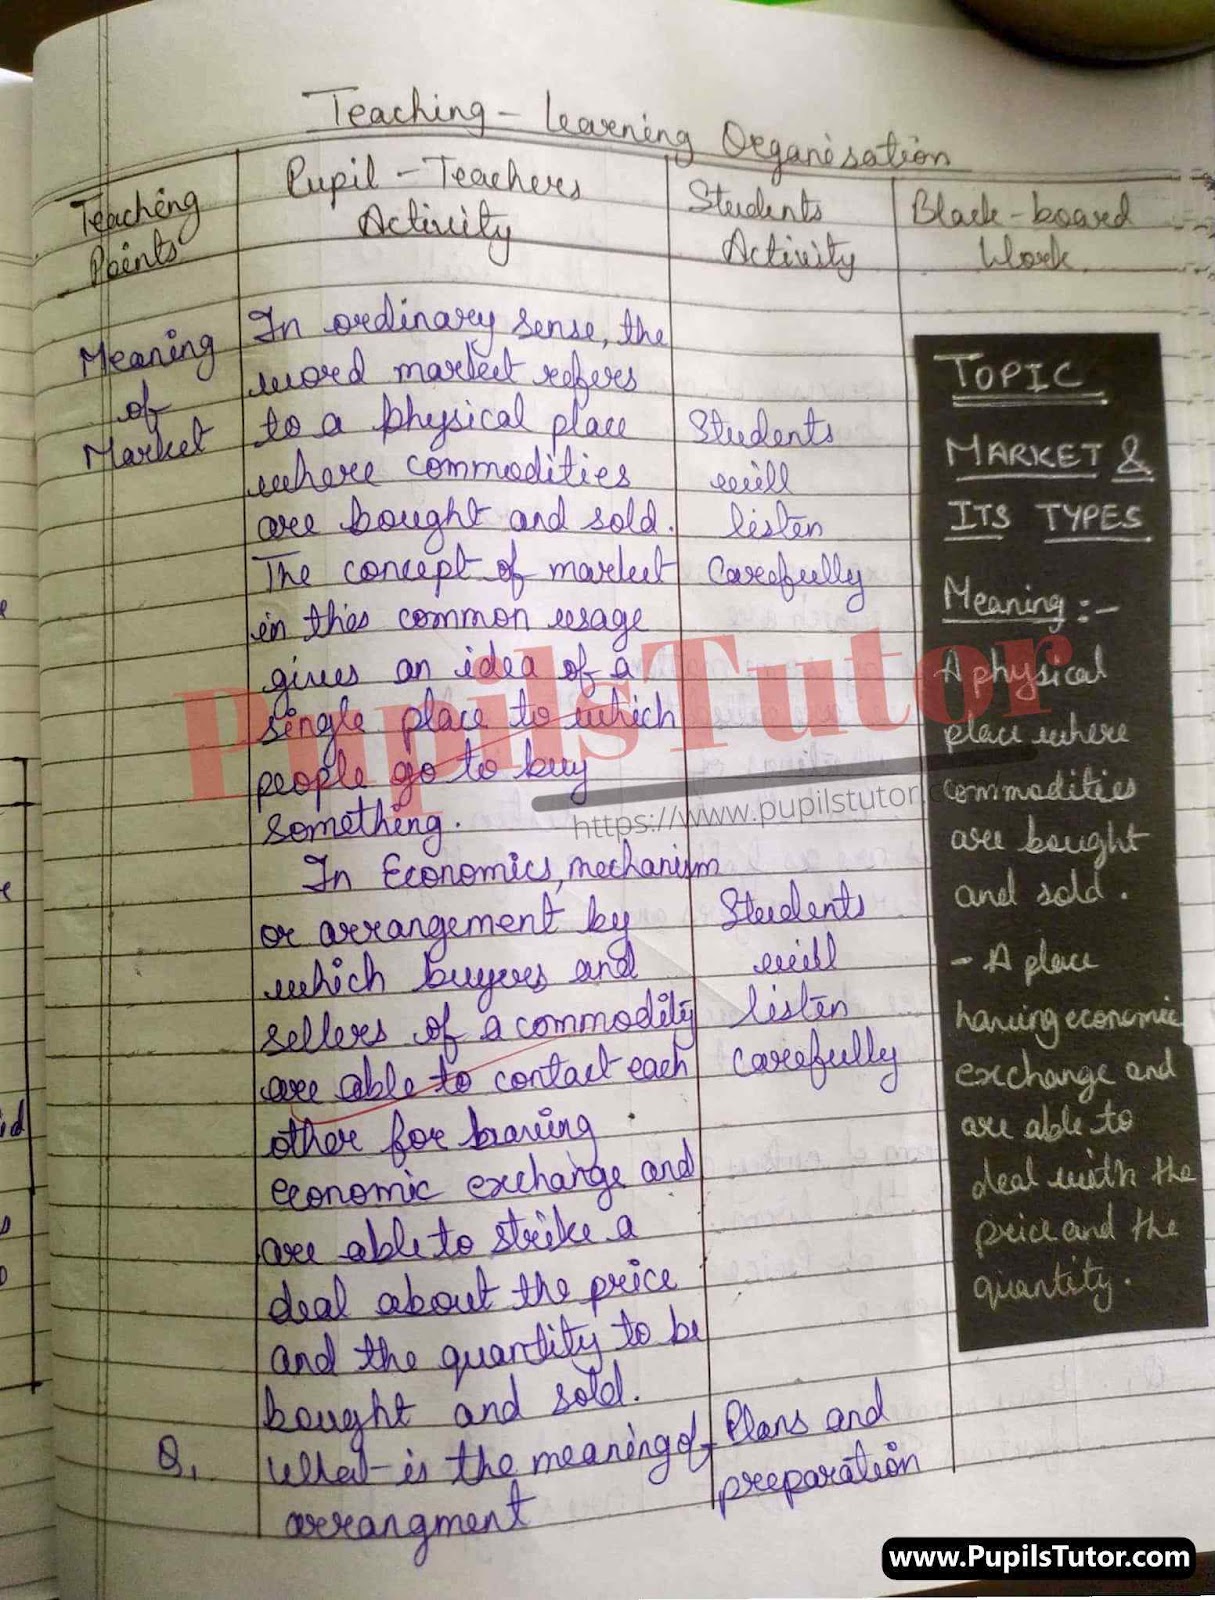 Teaching - Learning Organisation
Teaching
Points
Pupil - Teachers
Activity
Students
Activity
Black-board
Work
Meaning
of
Market
In ordinary sense, the
word market refers
to a physical place
where commodities
are bought and sold.
The concept of market
in this common usage
gives an idea of a
single place to which
people go to buy
something.
In Economics, mechanism
or arrangement by
which buyers and
sellers of a commodity
are able to contact each
other for having
economic exchange and
are able to strike a
deal about the price
and the quantity to be
bought and sold.
Q1
What is the meaning of
arrangment
Students
will
listen
Carefully
Students
will
listen
Carefully
Plans and
preparation
TOPIC
MARKET &
ITS TYPES
Meaning :-
A physical
place where
commodities
are bought
and sold.
- A place
having economic
exchange and
are able to
deal with the
price and the
quantity.
PupilsTutor
https://www.pupilstutor.com/
www.PupilsTutor.com